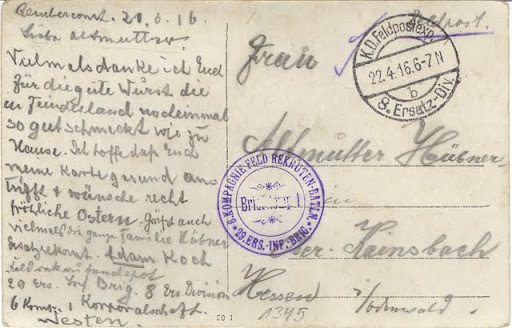 21.4.16
Liebe Altmutter!
Vielmals danke ich Euch
für die gute Wurst die
in Feindesland nocheinmal
so gut schmeckt wie zu
Hause. Ich hoffe daß Euch
meine Karte gesund an-
trifft & wünsche recht
fröhliche Ostern. Grüßt auch
vielmals die ganze Familie Hübner
Adam Koch
Feldrekrutendepot
29 Ers. Inf Brig. 8 Ers. Division
6 Komp. 1 Korporalschaft.
Westen.
Feldpost.
K.D. Feldpostexp.
22.4.16. 6-7 N
b
8. Ersatz-Div.
Frau
Altmutter Hübner
in
Ober Kainsbach
Hessen i/Odenwald
1345
6. KOMPAGNIE FELD REKRUTEN-BATLN.
29. ERS.-INF.-BRIG.